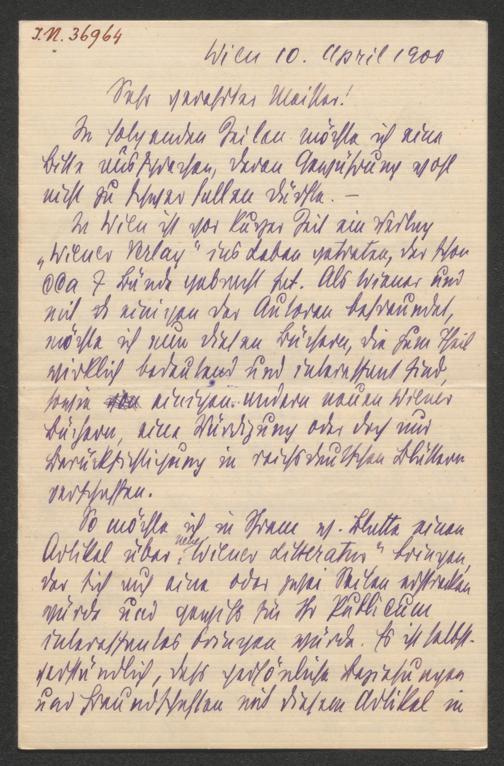 I.N. 36964
Wien 10. April 1900
Sehr verehrter Meister!
In folgenden Zeilen möchte ich eine
Bitte aussprechen, deren Gewährung wohl
nicht zu schwer fallen dürfte. –
In Wien ist vor kurzer Zeit ein Verlag
„Wiener Verlag" ins Leben getreten, der schon
cca 7 Bände gebracht hat. Als Wiener und
mit einigen der Autoren befreundet,
möchte ich nun diesen Büchern, die zum Theil
wirklich bedeutend und interessant sind,
sowie einigen andern neuen Wiener
Büchern, eine Würdigung oder doch nur
Berücksichtigung in reichsdeutschen Blättern
verschaffen.
So möchte ich in Ihrem w. Blatte einen
Artikel über „neue Wiener Litteratur" bringen,
der sich auf eine oder zwei Seiten erstrecken
würde und gewiß für Ihr Publicum
interessantes bringen würde. Es ist selbst-
verständlich, daß persönliche Beziehungen
und Freundschaften mit diesem Artikel in